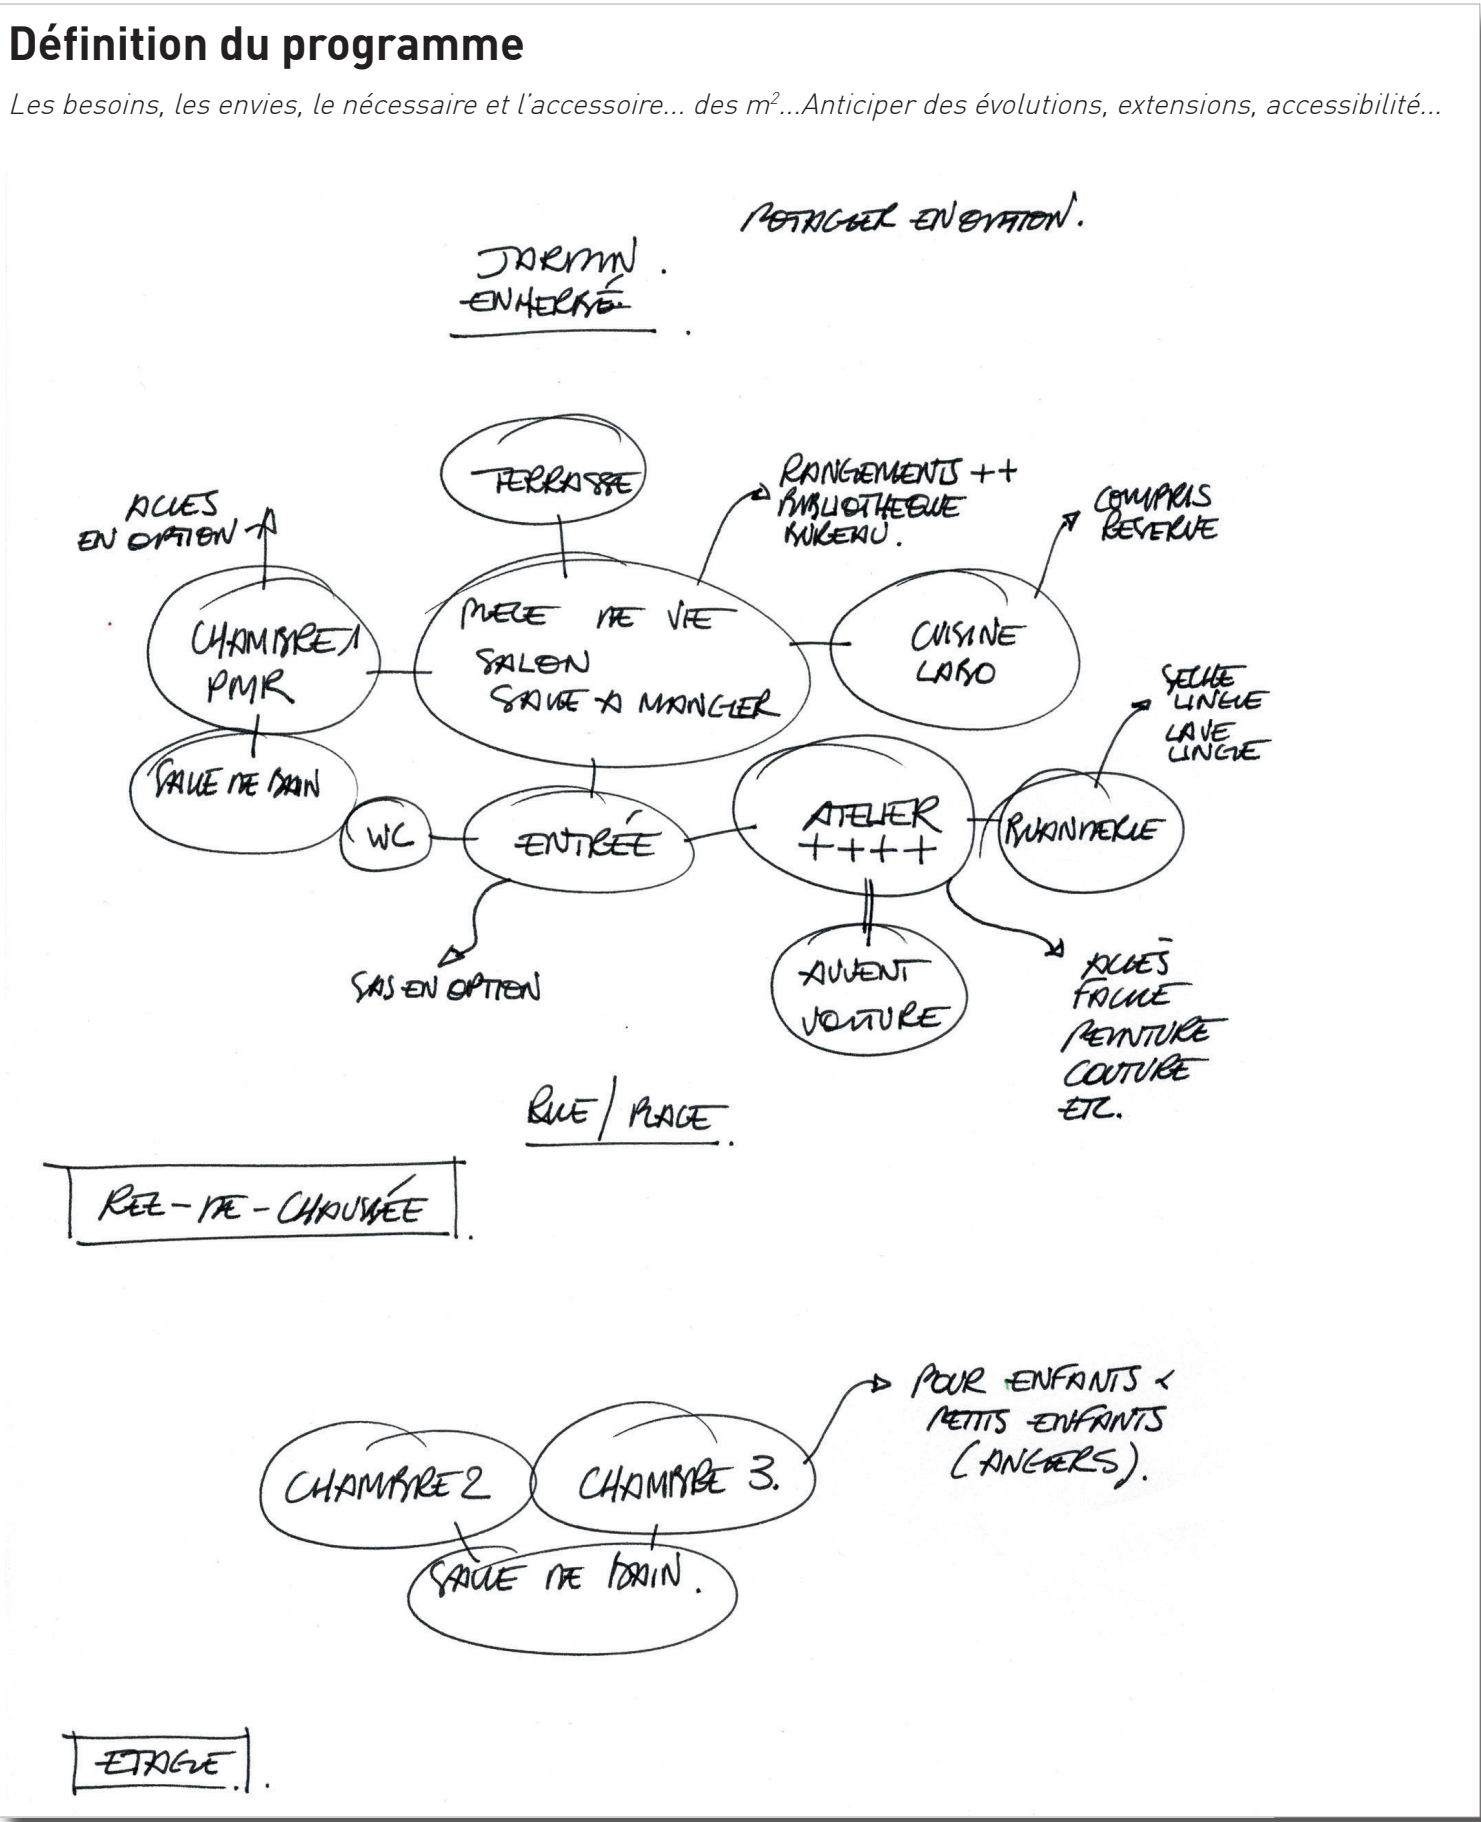 Définition du programme
Les besoins, les envies, le nécessaire et l'accessoire... des m²...Anticiper des évolutions, extensions, accessibilité...
POTAGER EN OPTION.
JARDIN.
ENHERBÉ.
TERRASSE
RANGEMENTS ++
BIBLIOTHEQUE
BUREAU.
COMPRIS
RESERVE
ACCES
EN OPTION
CHAMBRE 1
PMR
PIECE DE VIE
SALON
SALLE A MANGER
CUISINE
LABO
SECHE
LINGE
LAVE
LINGE
SALLE DE BAIN
WC
ENTRÉE
ATELIER
++++
BUANDERIE
SAS EN OPTION
AUVENT
VOITURE
ACCÈS
FACILE
PEINTURE
COUTURE
ETC.
RUE / PLACE.
REZ-DE-CHAUSSÉE.
POUR ENFANTS &
PETITS ENFANTS
(ANGERS).
CHAMBRE 2
CHAMBRE 3.
SALLE DE BAIN.
ETAGE.